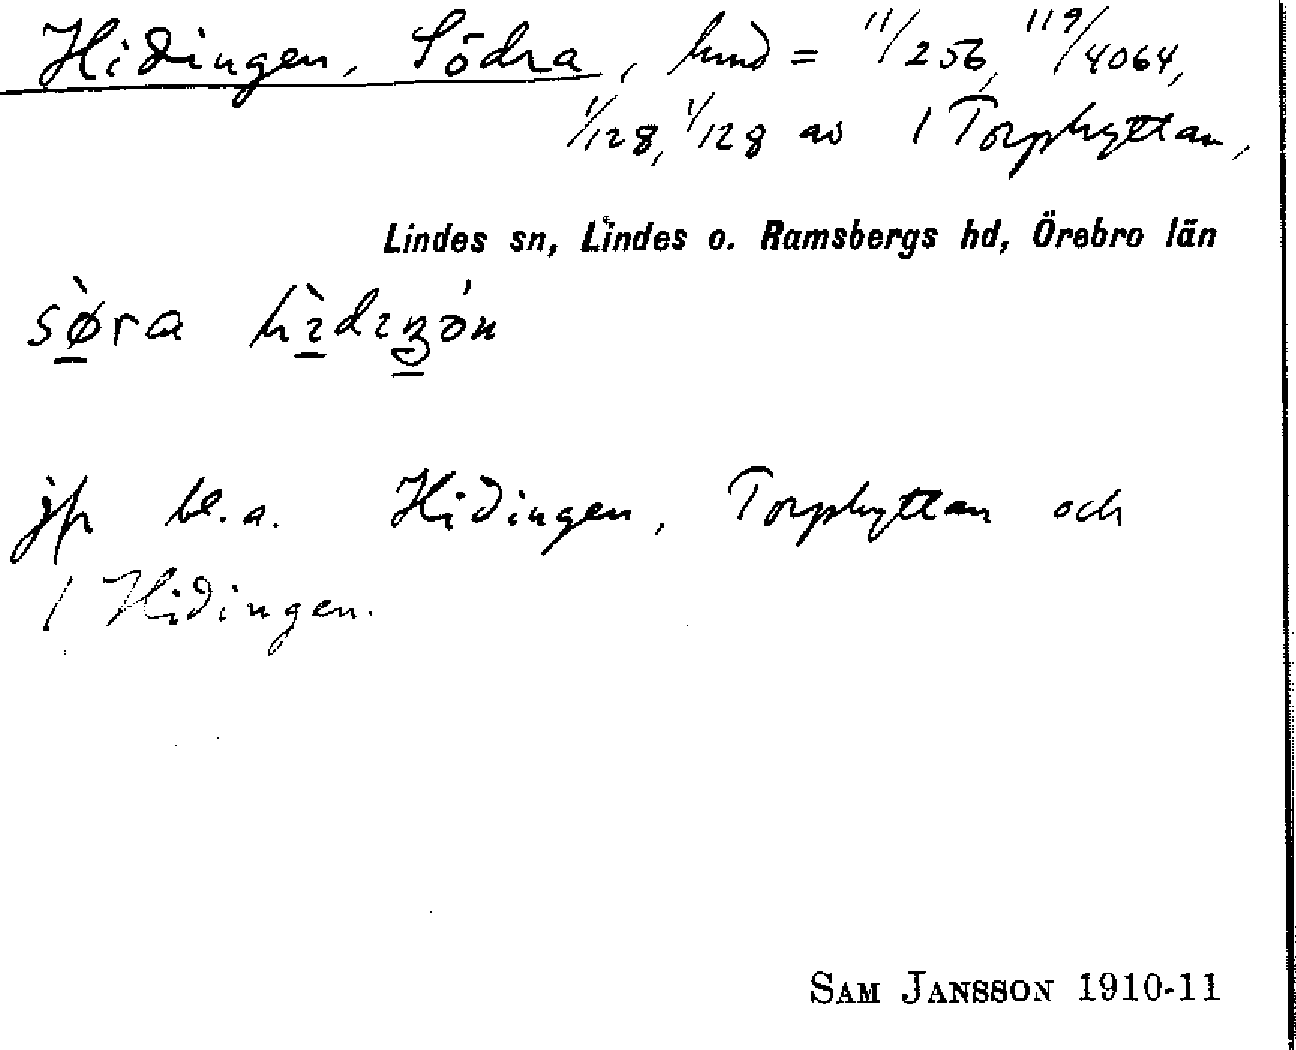 Hidingen, Södra, hmd = 11/256, 119/4064,
1/128, 1/128 av 1 Torphyttan,
Lindes sn, Lindes o. Ramsbergs hd, Örebro län
sø̀ra
jfr bl.a. Hidingen, Torphyttan och
1 Hidingen.
SAM JANSSON 1910-11